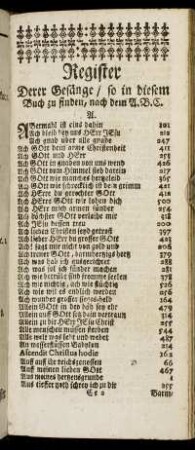 Register
Derer Gesänge / so in diesem
Buch zu finden, nach dem A.B.C.
A.
ABermahl ist eins dahin 101
Ach bleib bey uns HErr JEsu
Ach Gnad über alle gnade 247
Ach GOtt deine arme Christenheit 411
Ach GOtt und HErr 258
Ach GOtt vom Himmel sieh darein
Ach GOtt wie manches hertzeleid 365
Ach GOtt wie schrecklich ist dein grimm 421
Ach HErr du gerechter GOtt
Ach HErre GOtt wie haben dich
Ach HErr mich armen sünder 254
Ach höchster GOtt verleihe mir 318
Ach JEsu dessen treu 200
Ach lieben Christen seyd getrost 397
Ach lieber HErr du grosser GOtt
Ach sagt mir nicht von gold und 206
Ach treuer GOtt, barmhertzigs hertz 370
Ach was hab ich ausgerichtet 288
Ach was soll ich sünder machen 281
Ach wie betrübt sind fromme seelen 378
Ach wie nichtig, ach wie flüchtig
Ach wie will es endlich werden 285
Ach wunder grosser sieges-held 164
Allein GOtt in der höh sey ehr 479
Allein auf GOtt setz dein vertraun 314
Allein zu dir HErr JEsu Christ 255
Alle menschen müssen sterben
Alle welt was lebt und webet 242
An wasserflüssen Babylon
Ascendit Christus hodie 162
Auff auff ihr reichsgenossen 66
Auff meinen lieben GOtt 467
Aus meines hertzensgrunde
Aus tieffer noth schrey ich zu dir 255
Barm-